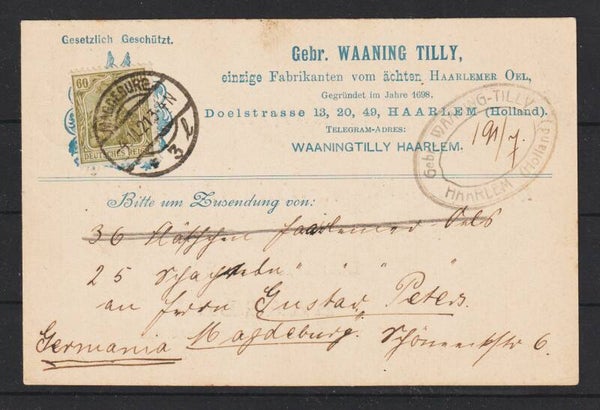 Gesetzlich Geschützt.
Gebr. WAANING TILLY,
einzige Fabrikanten vom ächten HAARLEMER OEL,
Gegründet im Jahre 1698.
Doelstrasse 13, 20, 49, HAARLEM (Holland).
TELEGRAM-ADRES:
WAANINGTILLY HAARLEM.
60
DEUTSCHES REICH
MAGDEBURG
3 l
Gebr. WAANING-TILLY
HAARLEM (Holland)
191/7.
Bitte um Zusendung von:
36 Fläschchen Haarlemer Oels
25 Schachteln " " "
an Herrn Gustav Peters
Germania Magdeburg. Schöneckstr 6.